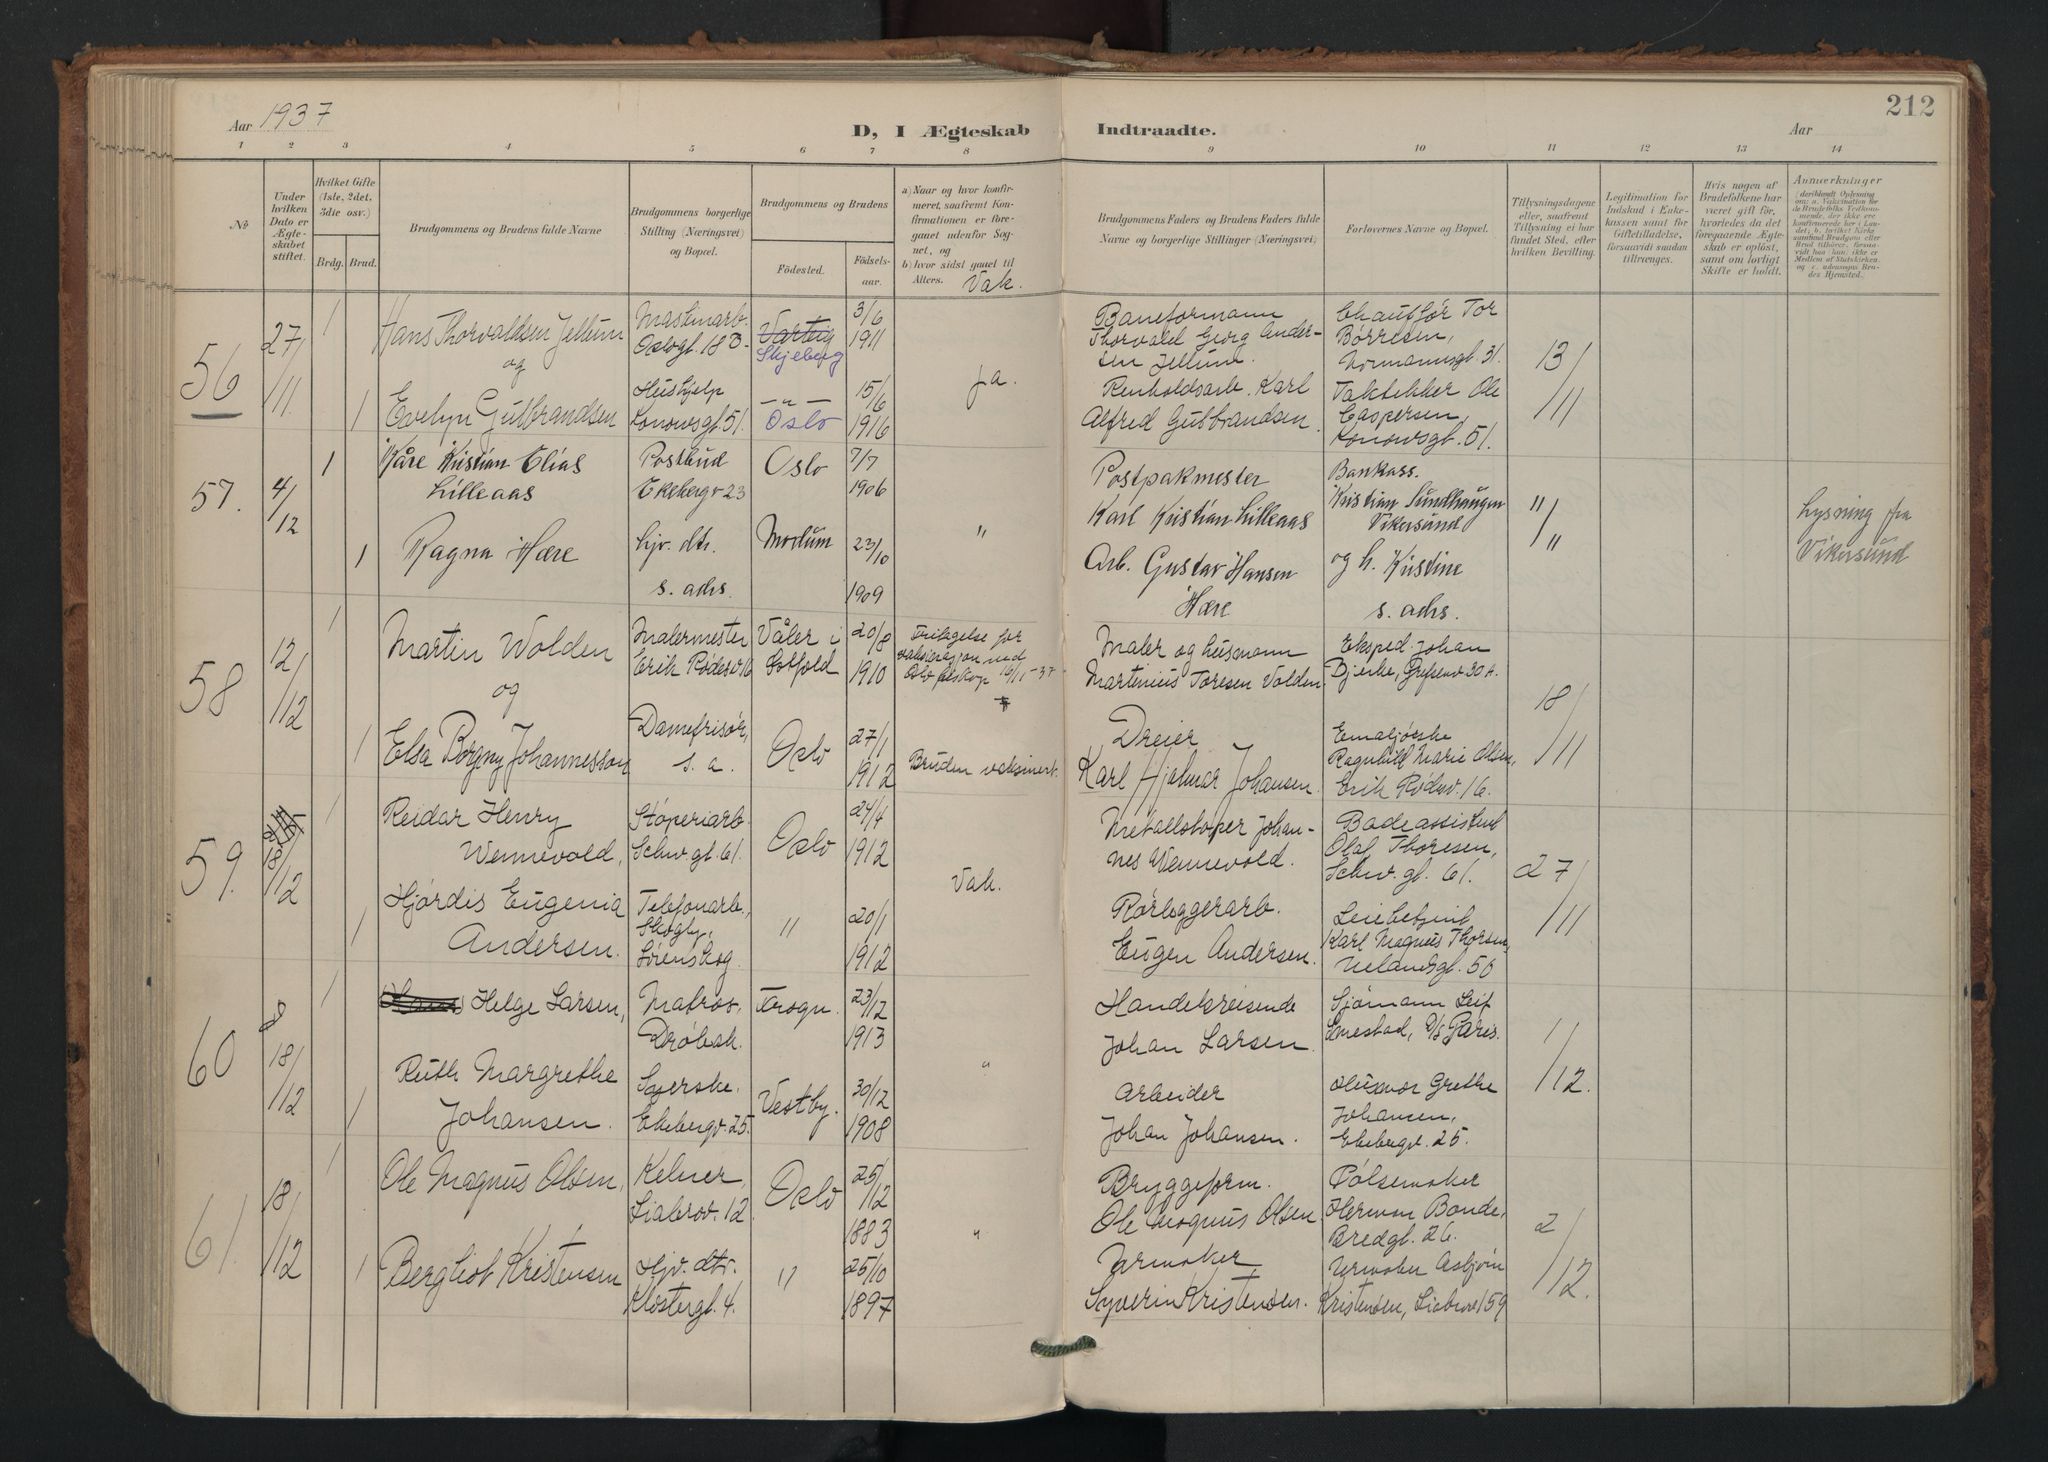 Aar 1937
D, I Ægteskab Indtraadte.
Aar
212
1 2 3 4 5 6 7 8 9 10 11 12 13 14
No
Under hvilken Dato er Ægteskabet stiftet.
Hvilket Gifte (1ste, 2det, 3die osv.)
Brdg. Brud.
Brudgommens og Brudens fulde Navne
Brudgommens borgerlige Stilling (Næringsvei) og Bopæl.
Brudgommens og Brudens
Födested.
Födselsaar.
a) Naar og hvor konfirmeret, saafremt Konfirmationen er foregaaet udenfor Sognet, og
b) hvor sidst gaaet til Alters.
Vak.
Brudgommens Faders og Brudens Faders fulde Navne og borgerlige Stillinger (Næringsvei)
Forlovernes Navne og Bopæl.
Tillysningsdagene eller, saafremt Tillysning ei har fundet Sted, efter hvilken Bevilling.
Legitimation for Indskud i Enkekassen samt for Giftetilladelse, forsaavidt saadan tiltrænges.
Hvis nogen af Brudefolkene har været gift för, hvorledes da det foregaaende Ægteskab er oplöst, samt om lovligt Skifte er holdt.
Anmærkninger
56
27/11
1
Hans Thorvaldsen Jellum
og
Maskinarb.
Oslogt. 18 B
Varteig
Skjeberg
3/6
1911
Baneformann
Thorvald Georg Andersen Jellum.
Chauffør Tor
Børresen,
Normannsgt. 31.
13/11
1
Evelyn Gulbrandsen
Hushjelp
Konowsgt. 51.
— " —
Oslo
15/6
1916
ja.
Renholdsarb. Karl
Alfred Gulbrandsen
Taktekker Ole
Caspersen,
Konowsgt. 51.
57.
4/12
1
Kåre Kristian Elias
Lilleaas
Postbud
Ekebergv 23
Oslo
7/7
1906
Postpakmester
Karl Kristian Lilleaas
Bankass.
Kristian Sundhaugen
Vikersund
"/"
Lysning fra
Vikersund
1
Ragna Hære
hjv. dtr.
s. adrs.
Modum
23/10
1909
"
Arb. Gustav Hansen
Hære
og h. Kristine
s. adrs.
58
12/12
1
Martin Wolden
og
Malermester
Erik Rødesv. 16
Våler i
Østfold
20/8
1910
Fritagelse for
vaksinasjon ved
Oslo biskop 16/11-37
Maler og husmann
Martinius Toresen Volden.
Eksped. Johan
Bjerke, Grefsenv 30 A.
18/11
1
Elsa Borgny Johannesson
Damefrisør,
s. a.
Oslo
27/1
1912
Bruden vaksinert.
Dreier
Karl Hjalmar Johansen.
Emaljørske
Ragnhild Marie Olsen,
Erik Rødesv. 16.
59.
18/12
1
Reidar Henry
Wennevold,
Støperiarb.
Schw. gt. 61.
Oslo
24/4
1912
Metallstøper Johannes Wennevold.
Badeassistent
Olaf Thoresen,
Schw. gt. 61.
27/11
1
Hjørdis Eugenia
Andersen.
Telefonarb.,
Skogly,
Lørenskog.
"
20/1
1912
Vak.
Rørleggerarb.
Eugen Andersen.
Leiebetjent
Karl Magnus Thorsen,
Uelandsgt. 50
60
18/12
1
Helge Larsen,
Matros.
Drøbak.
Frogn.
23/12
1913
Handelsreisende
Johan Larsen.
Sjømann Leif
Smestad, D/S Paris.
1/12.
1
Ruth Margrethe
Johansen.
Syerske.
Ekebergv. 25.
Vestby.
30/12
1908
"
Arbeider
Johan Johansen.
Grethe
Johansen,
Ekebergv. 25.
61.
18/12
1
Ole Magnus Olsen,
Kelner,
Liabrov. 12.
Oslo
25/12
1883
"
Bryggeform.
Ole Magnus Olsen.
Pølsemaker
Herman Bonde,
Bredgt. 26.
2/12.
1
Bergliot Kristensen
Hjv. dtr.
Klostergt. 4.
"
25/10
1897
Urmaker
Syverin Kristensen.
Urmaker Asbjørn
Kristensen, Liabrov 159